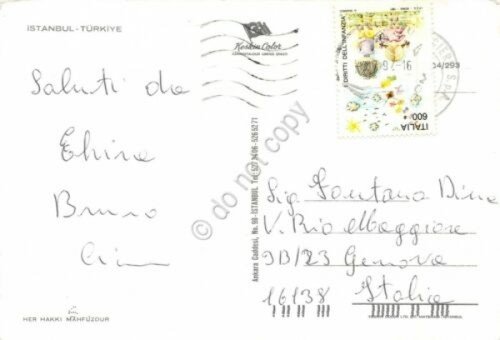 ISTANBUL - TÜRKİYE
Keskin Color
Saluti da
Bruno
HER HAKKI MAHFUZDUR
Ankara Caddesi, No. 98-İSTANBUL Tel:
I DIRITTI DELL'INFANZIA
ITALIA
600
04/293
Sig. Fontana Dino
V. Rio Maggiore
9B/23 Genova
16138 Italia
© do not copy